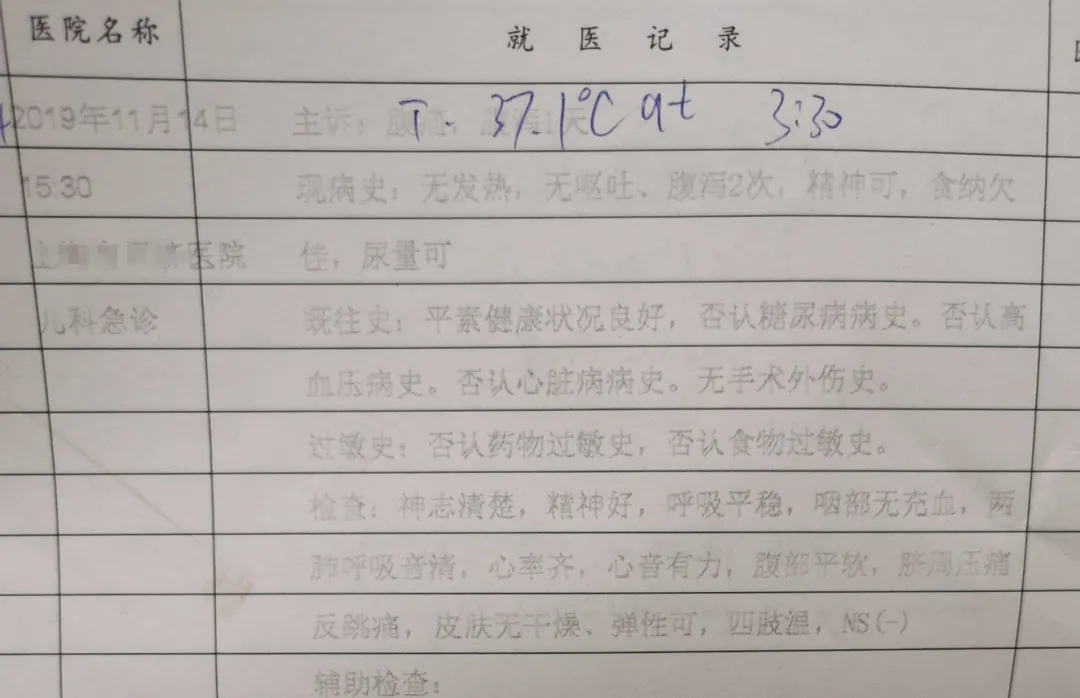 医院名称 就医记录
T. 37.1°C at 3:30
2019年11月14日 主诉：腹泻1天
15:30 现病史：无发热，无呕吐、腹泻2次，精神可，食纳欠
医院 佳，尿量可
儿科急诊 既往史：平素健康状况良好，否认糖尿病病史。否认高
血压病史。否认心脏病病史。无手术外伤史。
过敏史：否认药物过敏史，否认食物过敏史。
检查：神志清楚，精神好，呼吸平稳，咽部无充血，两
肺呼吸音清，心率齐，心音有力，腹部平软，脐周压痛
反跳痛，皮肤无干燥、弹性可，四肢温，NS(-)
辅助检查：